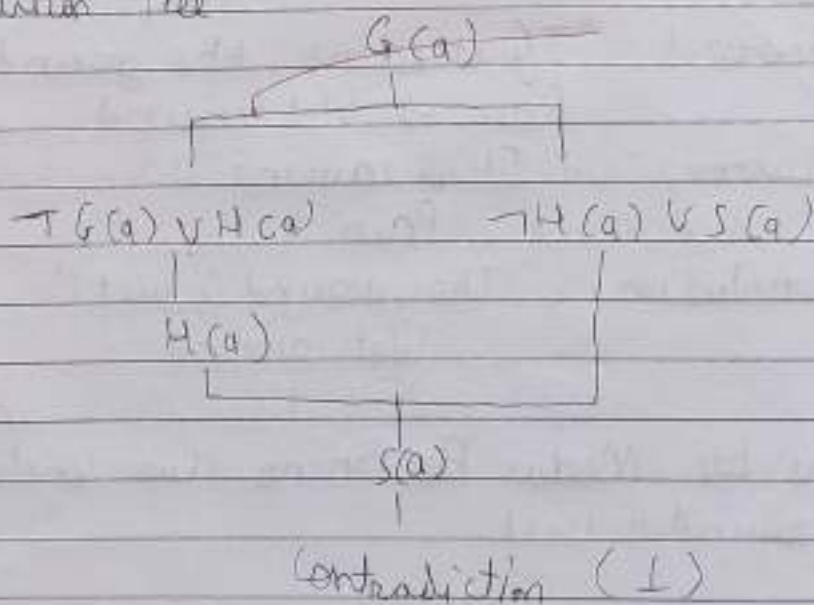 Tree
G(a)
¬G(a) ∨ H(a) ¬H(a) ∨ S(a)
H(a)
S(a)
Contradiction (⊥)